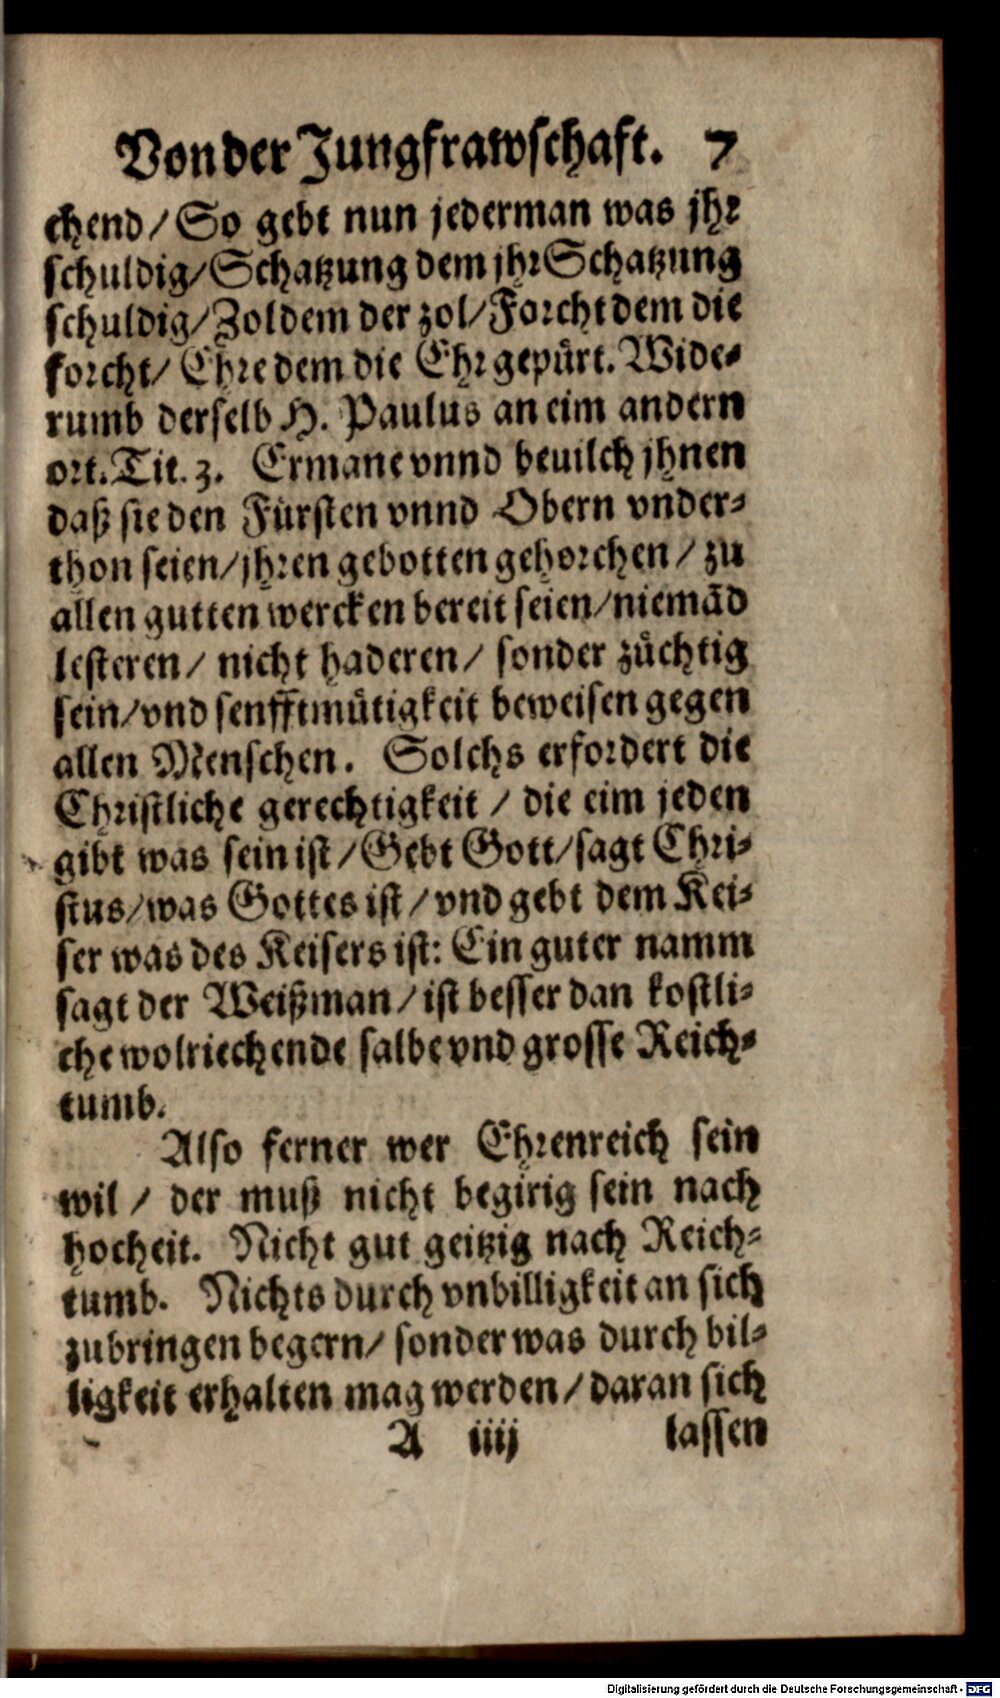 Von der Jungfrawschaft. 7
chend/ So gebt nun jederman was jhr
schuldig/ Schatzung dem jhr Schatzung
schuldig/ Zol dem der zol/ Forcht dem die
forcht/ Ehre dem die Ehr gepürt. Wide-
rumb derselb H. Paulus an eim andern
ort. Tit. 3. Ermane vnnd beuilch jhnen
daß sie den Fürsten vnnd Obern vnder-
thon seien/ jhren gebotten gehorchen/ zu
allen gutten wercken bereit seien/ niemãd
lesteren/ nicht haderen/ sonder züchtig
sein/ vnd senfftmütigkeit beweisen gegen
allen Menschen. Solchs erfordert die
Christliche gerechtigkeit/ die eim jeden
gibt was sein ist/ Gebt Gott/ sagt Chri-
stus/ was Gottes ist/ vnd gebt dem Kei-
ser was des Keisers ist: Ein guter namm
sagt der Weißman/ ist besser dan kostli-
che wolriechende salbe vnd grosse Reich-
tumb.
Also ferner wer Ehrenreich sein
wil/ der muß nicht begirig sein nach
hocheit. Nicht gut geitzig nach Reich-
tumb. Nichts durch vnbilligkeit an sich
zubringen begern/ sonder was durch bil-
ligkeit erhalten mag werden/ daran sich
A iiij lassen
Digitalisierung gefördert durch die Deutsche Forschungsgemeinschaft - DFG